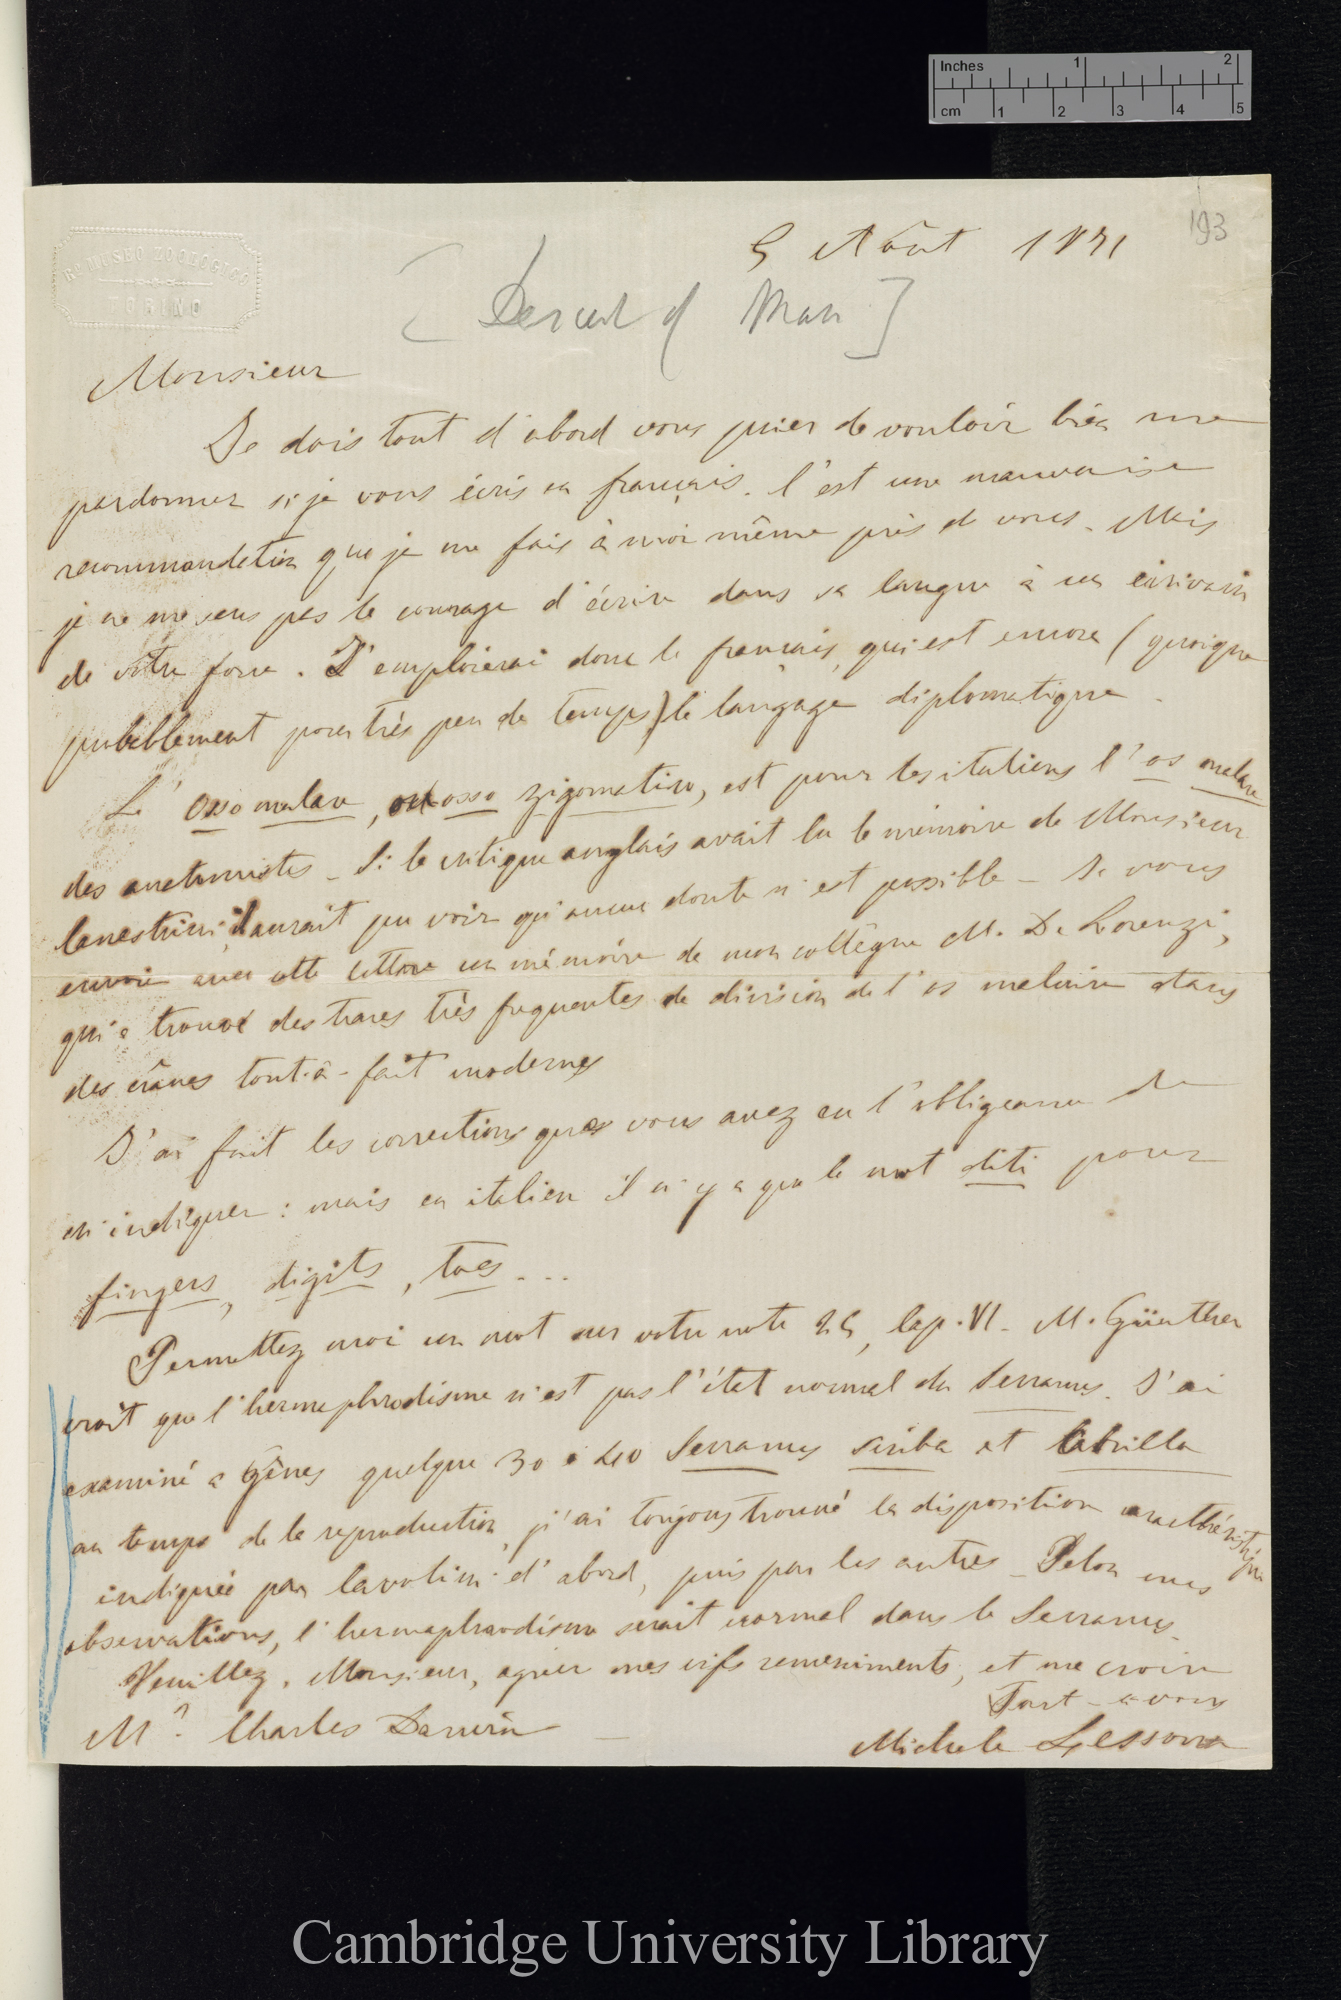 Inches 1 2
cm 1 2 3 4 5
193
Rº MUSEO ZOOLOGICO
TORINO
5 Août 1871
[Descent of Man]
Monsieur
Je dois tout d'abord vous prier de vouloir bien me
pardonner si je vous écris en français. C'est une mauvaise
recommandation que je me fais à moi même près de vous. Mais
je ne me sens pas le courage d'écrire dans sa langue à un écrivain
de votre force. J'emploierai donc le français, qui est encore (quoique
probablement pour très peu de temps) le langage diplomatique.
L'Osso malare, ou osso zigomatico, est pour les italiens l'os malaire
des anatomistes _ Si le critique anglais avait lu le mémoire de Monsieur
Canestrini, il aurait pu voir qu'aucun doute n'est possible _ Je vous
envoie avec cette lettre un mémoire de mon collègue M. De Lorenzi,
qui a trouvé des traces très frequentes de division de l'os malaire dans
des crânes tout-à-fait modernes
J'ai fait les corrections que vous avez eu l'obligeance de
m'indiquer : mais en italien il n'y a que le mot diti pour
fingers, digits, toes...
Permettez moi un mot sur votre note 25, Cap. VI _ M. Günther
croit que l'hermaphrodisme n'est pas l'état normal du Serranus. J'ai
examiné a Gênes quelque 30 o 40 Serranus scriba et Cabrilla
au temps de la reproduction, j'ai toujours trouvé la disposition caractéristique
indiquée par Cavolini d'abord, puis par les autres _ Selon mes
observations, l'hermaphrodisme serait normal dans le Serranus.
Veuillez, Monsieur, agréer mes vifs remerciments, et me croire
Tout-a-vous
Mr. Charles Darwin _ Michele Lessona
Cambridge University Library